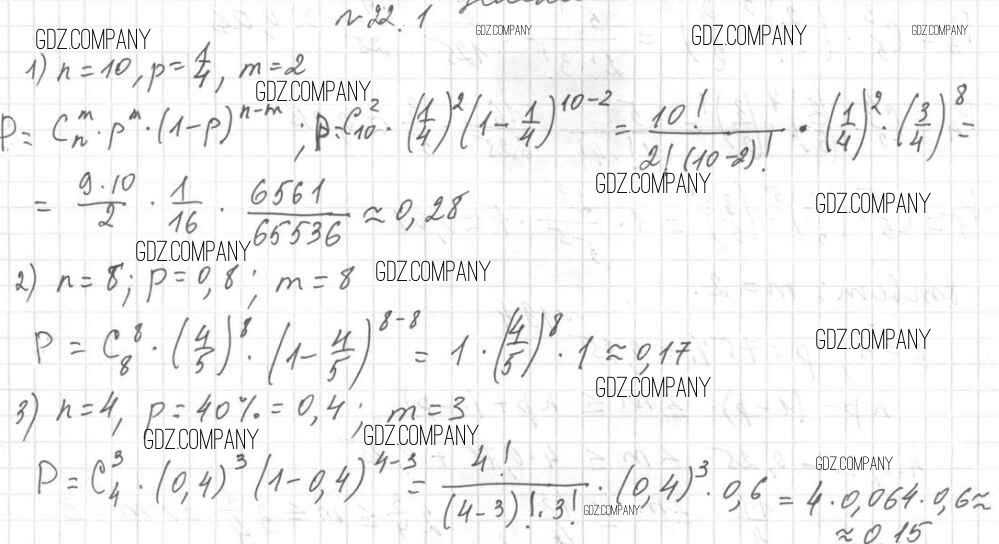 № 22. 1
GDZ.COMPANY GDZ.COMPANY GDZ.COMPANY GDZ.COMPANY
1) n = 10, p = 1/4, m = 2
GDZ.COMPANY
P = C_n^m · p^m · (1-p)^(n-m); P = C_10^2 · (1/4)^2 (1 - 1/4)^(10-2) = 10!/(2!(10-2)!) · (1/4)^2 · (3/4)^8 =
GDZ.COMPANY GDZ.COMPANY
= 9·10/2 · 1/16 · 6561/65536 ≈ 0,28
GDZ.COMPANY GDZ.COMPANY
2) n = 8; p = 0,8; m = 8
P = C_8^8 · (4/5)^8 · (1 - 4/5)^(8-8) = 1 · (4/5)^8 · 1 ≈ 0,17
GDZ.COMPANY
GDZ.COMPANY
3) n = 4, p = 40% = 0,4; m = 3
GDZ.COMPANY GDZ.COMPANY
P = C_4^3 · (0,4)^3 (1-0,4)^(4-3) = 4!/((4-3)!·3!) · (0,4)^3 · 0,6 = 4·0,064·0,6 ≈
GDZ.COMPANY GDZ.COMPANY
≈ 0,15